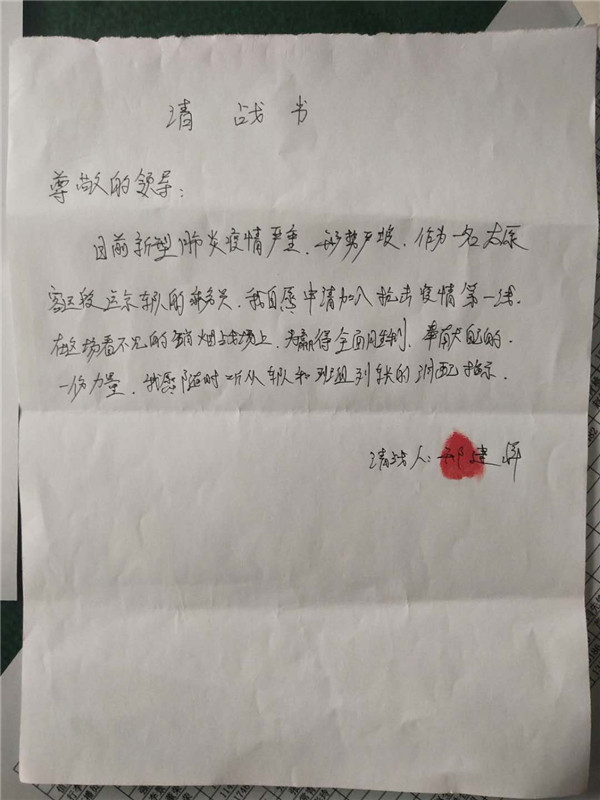 请战书
尊敬的领导：
目前新型肺炎疫情严重，形势严峻，作为一名太原
客运段运京车队的乘务员，我自愿申请加入抗击疫情第一线.
在这场看不见的硝烟战场上，为赢得全面胜利，奉献自己的.
一份力量，我愿随时听从车队和班组列车长的调配指示.
请战人：建